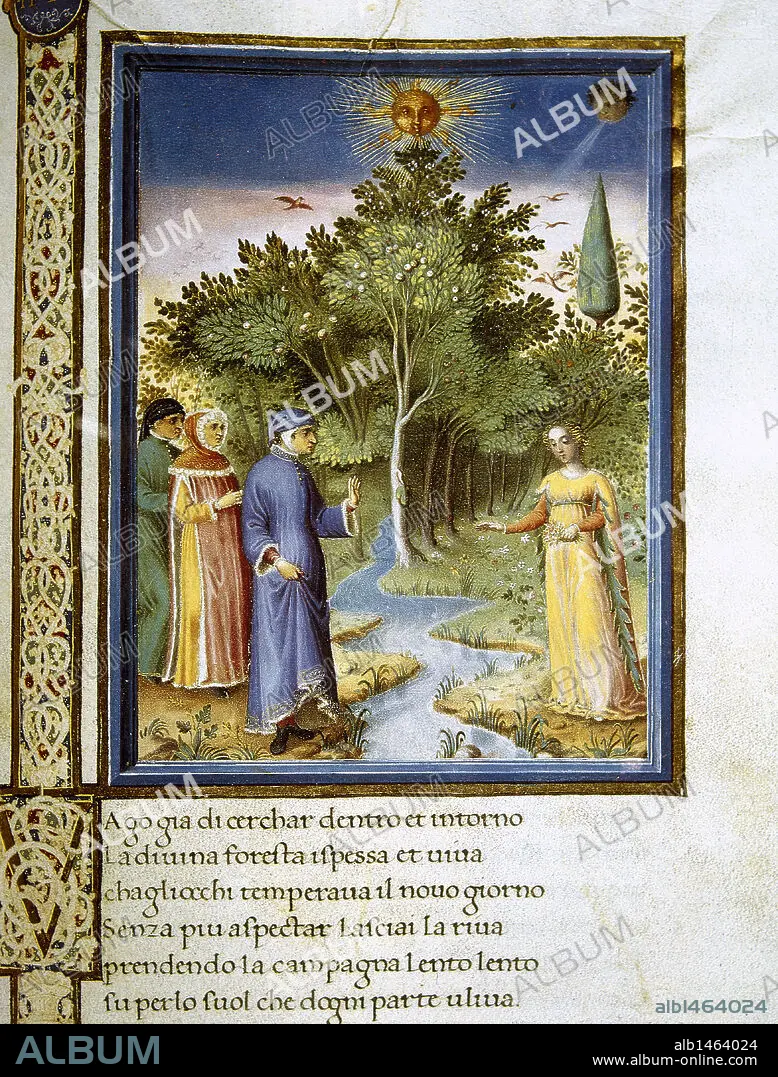 Vago gia di cerchar dentro et intorno
La diuina foresta ispessa et uiua
chagliocchi temperaua il nouo giorno
Senza piu aspectar lasciai la riua
prendendo la campagna lento lento
su perlo suol che dogni parte uliua
ALBUM
alb1464024
alb1464024
www.album-online.com